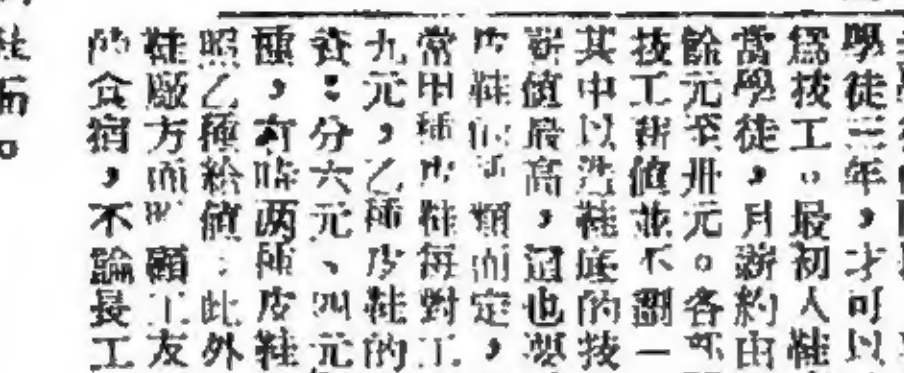 學徒三年，才可以
爲技工。最初入鞋
當學徒，月薪約由
餘元至卅元。各
技工薪值並不劃一
其中以造鞋底的技
薪值最高，這也要
皮鞋的種類而定，
常甲種皮鞋每對工
九元，乙種皮鞋的
資：分六元、四元
種，有啲两種皮鞋
照乙種給値；此外
鞋廠方面 顧工友
的食宿，不論長工
鞋而